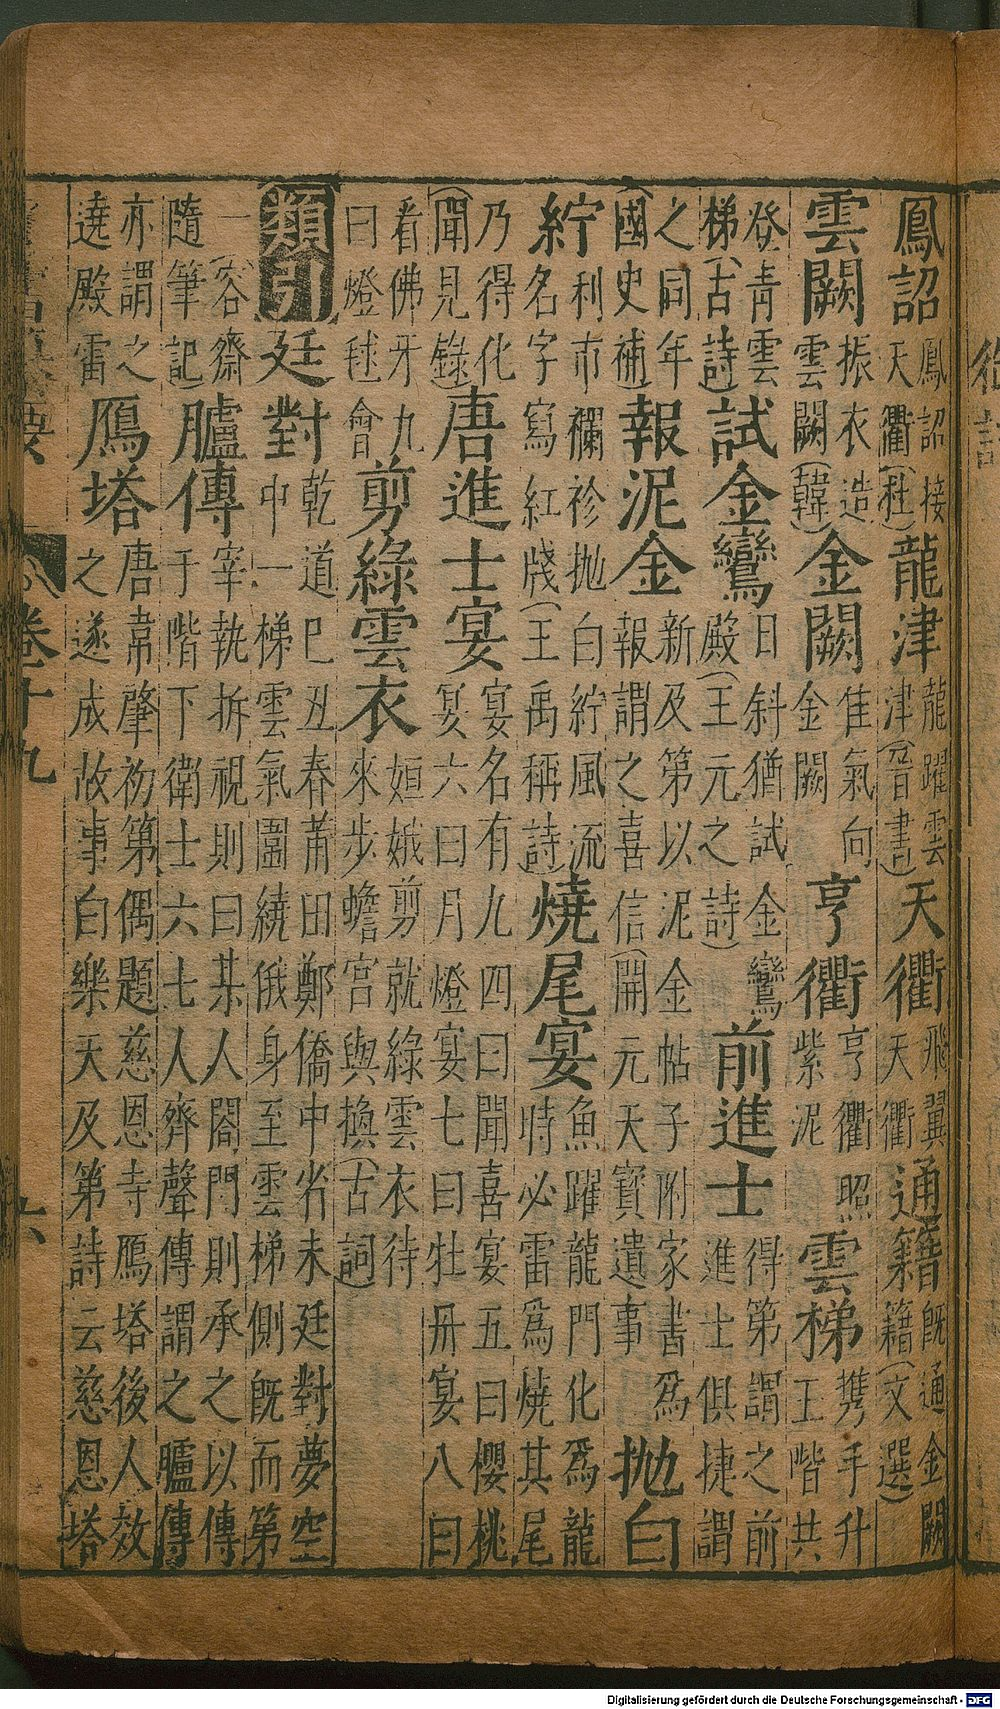 鳳詔鳳詔接天衢(杜)龍津龍躍雲津(晉書)天衢飛翼天衢通籍既通金闕籍(文選)
雲闕振衣造雲闕(韓)金闕隹氣向金闕亨衢亨衢照紫泥雲梯携手升玉階共
登青雲梯(古詩)試金鸞日斜猶試金鸞殿(王元之詩)前進士得第謂之前進士俱捷謂
之同年(國史補)報泥金新及第以泥金帖子附家書爲報謂之喜信(開元天寶遺事抛白
紵利市襴衫抛白紵風流名字寫紅牋(王禹稱詩)燒尾宴魚躍龍門化爲龍時必雷爲燒其尾
乃得化(聞見錄)唐進士宴宴名有九四曰聞喜宴五曰櫻桃宴六曰月燈宴七曰牡丹宴八曰
看佛牙九曰燈毬會剪綠雲衣姮娥剪就綠雲衣待來步蟾宮與換(古詞)
類引廷對乾道巳丑春莆田鄭僑中省未廷對夢空中一梯雲氣圍繞俄身至雲梯側旣而第
一(容齋隨筆記臚傳宰執拆視則曰某人閤門則承之以傳于階下衛士六七人齊聲傳謂之臚傳
亦謂之遶殿雷鴈塔唐韋肇初第偶題慈恩寺鴈塔後人效之遂成故事白樂天及第詩云慈恩塔
卷十九
Digitalisierung gefördert durch die Deutsche Forschungsgemeinschaft - DFG